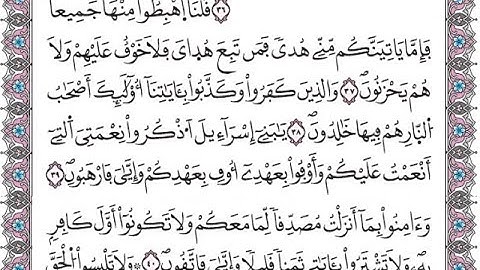 ٣٦ قُلْنَا اَهْبِطُواْ مِنْهَا جَمِيعاً
فَإِمَّا يَاتِيَنَّكُم مِّنِّے هُدىً فَمَن تَبِعَ هُدٜاىَ فَلَا خَوْفٌ عَلَيْهِمْ وَلَا
هُمْ يَحْزَنُونَۖ ٣٧ وَالذِينَ كَفَرُواْ وَكَذَّبُواْ بِـَٔايَٰتِنَآ أُوْلَٰٓئِكَ أَصْحَٰبُ
اُ۬لنّ۪ارِ هُمْ فِيهَا خَٰلِدُونَۖ ٣٨ يَٰبَنِےٓ إِسْرَآءِيلَ اَ۟ذْكُرُواْ نِعْمَتِيَ اَ۬لتِےٓ
أَنْعَمْتُ عَلَيْكُمْ وَأَوْفُواْ بِعَهْدِےٓ أُوفِ بِعَهْدِكُمْ وَإِيَّٰىَ فَارْهَبُونِۖ ٣٩
وَءَامِنُواْ بِمَآ أَنزَلْتُ مُصَدِّقاً لِّمَا مَعَكُمْ وَلَا تَكُونُوٓاْ أَوَّلَ كَافِرِۢ
بِهِۦ وَلَا تَشْتَرُواْ بِـَٔايَٰتِے ثَمَناً قَلِيلاً وَإِيَّٰىَ فَاتَّقُونِۖ ٤٠ وَلَا تَلْبِسُواْ اُ۬لْحَقَّ